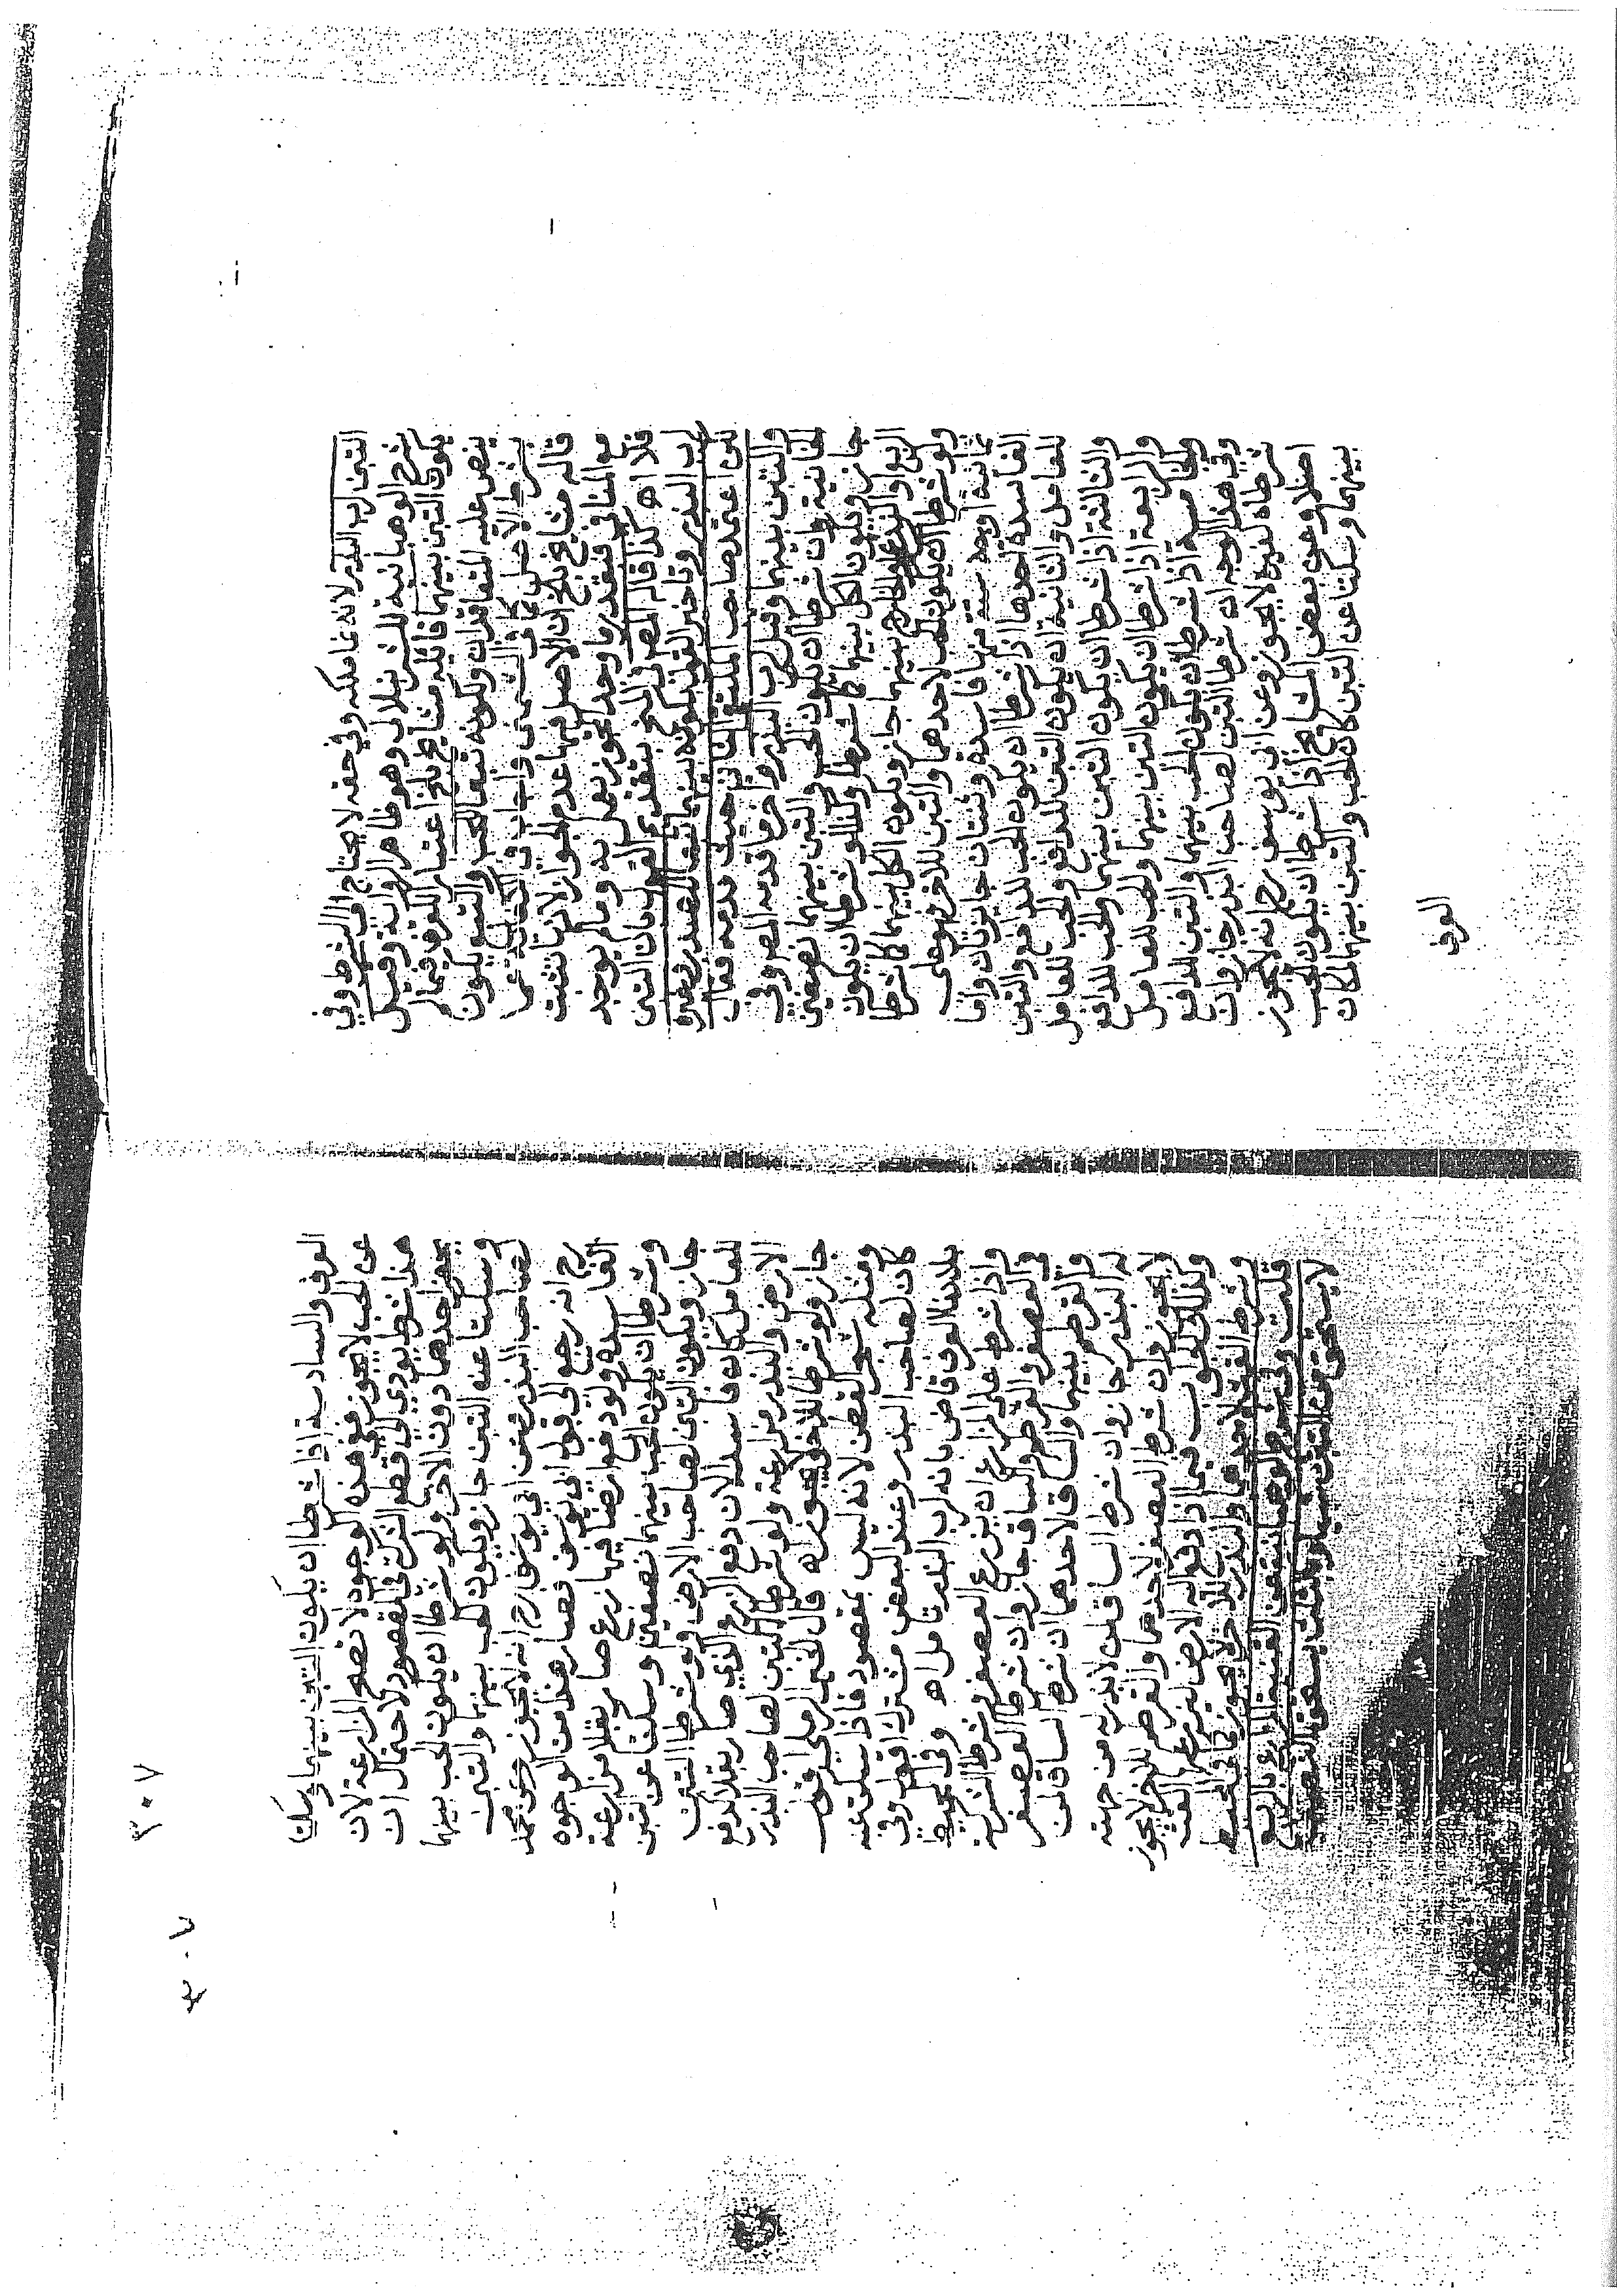 التبن لرب البذر لانه نما ملكه وفي حقه لا يحتاج الى الشرط وفي
شرح الوهبانية للشرنبلالي وهو ظاهر الرواية وقيل
يكون التبن بينهما قائله مشايخ بلخ اعتبارا للعرف فيما لم
ينص عليه المتعاقدان ولكونه تبعا للحب والتبع يكون
بشرط الاصل
قاله مشايخ بلخ ان الاصل فيها عدم الجواز لانها تثبت
مع المنافي فبقدر ما وجد المجوز يعمل به وما لم يوجد
فلا اه كذا قاله المصنف في المنح
رب البذر وتاخير القول بكونه بينهما
لكن اعتمد صاحب الملتقى الثاني حيث قدمه فقال
والتبن بينهما وقيل لرب البذر
الخانية وان شرطا ان يكون الحب والتبن بينهما نصفين
جاز ويكون الكل بينهما كما شرطا وكذا لو شرطا ان يكون
الريع او الزرع او الخارج بينهما جاز ويكون الكل بينهما كما شرطا
ولو شرطا ان يكون الحب لاحدهما والتبن للاخر فهو على
ثمانية اوجه ستة منها فاسدة وثنتان جايزتان واما
الفاسدة احدها اذا شرطا ان يكون الحب للدافع والتبن
للعامل والثانية ان يكون التبن للدافع والحب للعامل
والثالثة اذا شرطا ان يكون التبن بينهما والحب للدافع
والرابعة اذا شرطا ان يكون التبن بينهما والحب للعامل
والخامسة اذا شرطا ان يكون الحب بينهما والتبن للدافع
وفي هذا الوجه ان شرطا التبن لصاحب البذر جاز وان
شرطاه لغيره لا يجوز وعن ابي يوسف رح انه لا يجوز
اصلا وعن بعض المشايخ اذا شرطا ان يكون الحب
بينهما وسكتا عن التبن كان الحب والتبن بينهما لمكان
العرف
العرف والسادسة اذا شرطا ان يكون التبن بينهما وسكتا
عن الحب لا يجوز ففي هذه الوجوه لا تصح المزارعة لان
هذا شرط يودي الى قطع الشركة في المقصود لاحتمال ان
يحصل احدهما دون الاخر ولو شرطا ان يكون الحب بينهما
وسكتا عنه التبن جاز ويكون الحب بينهما والتبن
لصاحب البذر وعن ابي يوسف رح انه لا يجوز وعن محمد
رح انه رجع الى قول ابي يوسف فصار هذا من الوجوه
الفاسدة ولو دفع ارضا فيها زرع صار بقلا مزارعة
وشرطا ان يكون الحب بينهما نصفين وسكتا عن التبن
جاز ويكون التبن لصاحب الارض ولو شرطا التبن
للعامل كان فاسدا لان دفع الزرع الذي صار بقلا كدفع
الارض والبذر مزارعة ولو شرطا التبن لصاحب البذر
جاز ولو شرطا للاخر لا يجوز اه قال الخير الرملي اقول
ومثله شجر القطن لانه ليس بمقصود فاذا سكت عنه
كان لصاحب البذر وعند البعض مشترك اقول وفي
بلادنا العرف قاض بانه لرب البذر تامل اه وفي المحيط
واذا شرط على المزارع ان يزرع العصفر وشرط الشركة
في العصفر والقرطم والساق جاز وان شرط العصفر
والقرطم بينهما والساق لاحدهما ان شرط الساق لمن
له البذر جاز وان شرط الساق لمن لا بذر من جهته
لا يجوز وان شرط العصفر لاحدهما والقرطم للاخر لا يجوز
وكذلك الجواب فيما اذا دفع اليه الارض ليزرعها القت
وشرط القت لاحدهما والبذر للاخر لا يجوز
قلت وفي شرح الوهبانية عن القنية المزارع بالربع
لا يستحق من التبن شيئا وبالثلث يستحق النصف
٣٠٧